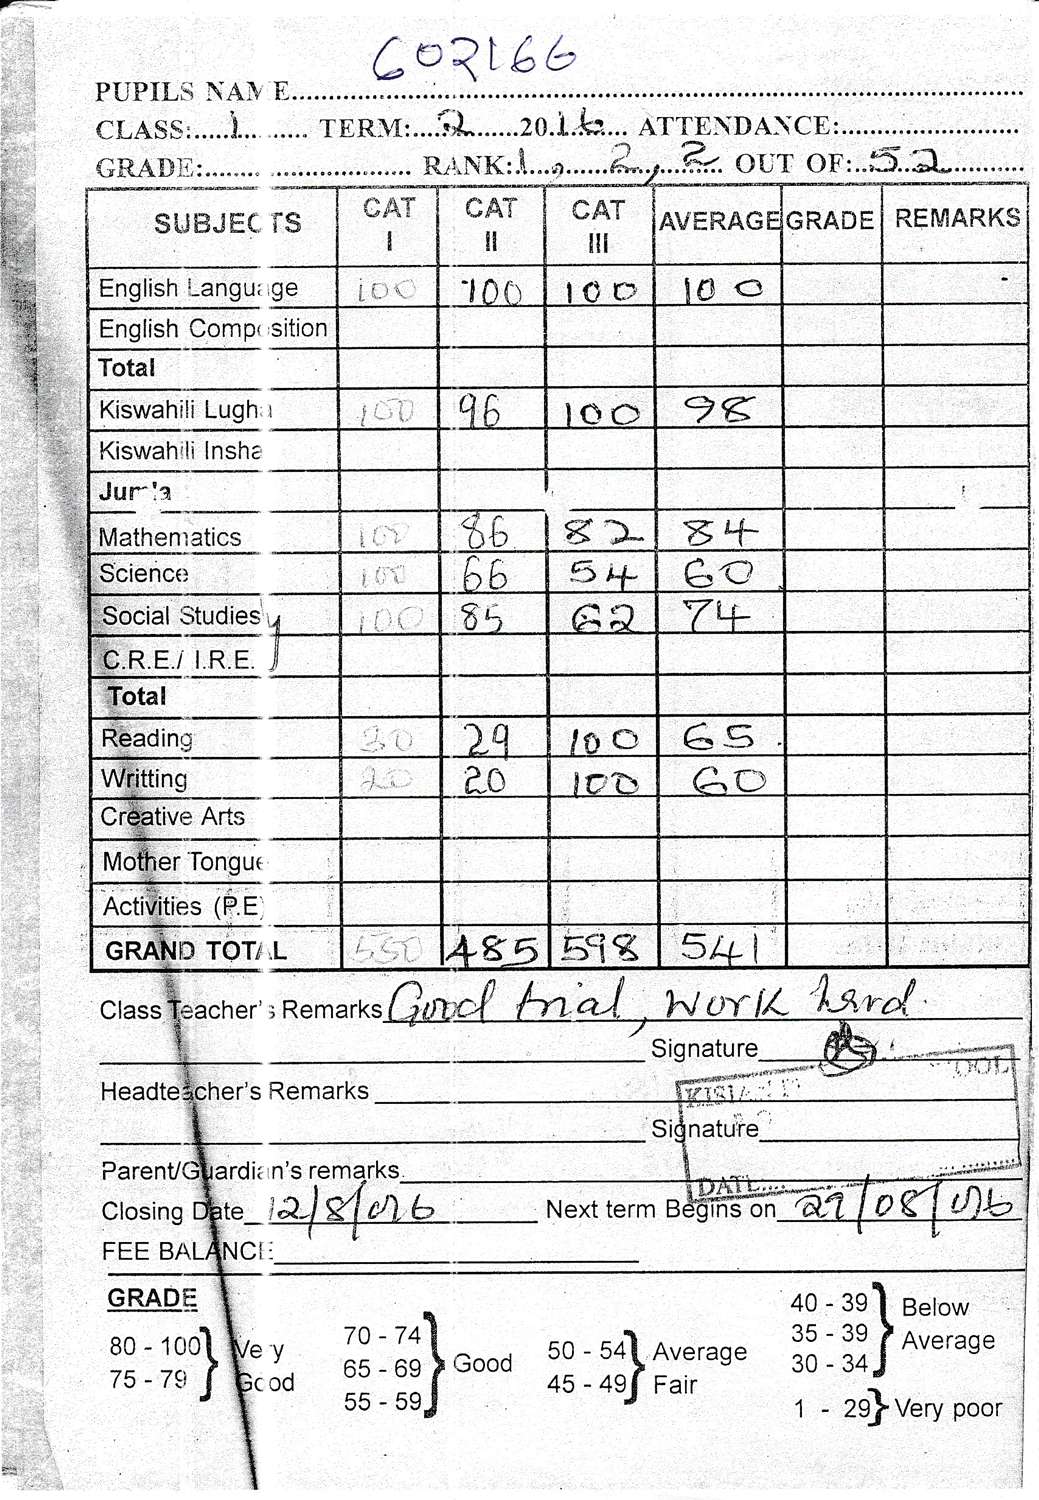 602166
PUPILS NAME
CLASS: 1 TERM: 2 2016 ATTENDANCE:
GRADE: RANK: 1, 2, 2 OUT OF: 52
SUBJECTS CAT I CAT II CAT III AVERAGE GRADE REMARKS
English Language 100 100 100 100
English Composition
Total
Kiswahili Lugha 100 96 100 98
Kiswahili Insha
Jumla
Mathematics 100 86 82 84
Science 100 66 54 60
Social Studies 100 85 62 74
C.R.E./ I.R.E.
Total
Reading 30 29 100 65
Writting 20 20 100 60
Creative Arts
Mother Tongue
Activities (P.E)
GRAND TOTAL 550 485 598 541
Class Teacher's Remarks Good trial, work hard.
Signature
Headteacher's Remarks
Signature
Parent/Guardian's remarks
DATE
Closing Date 12/8/016 Next term Begins on 29/08/016
FEE BALANCE
GRADE
80 - 100
75 - 79 } Very Good
70 - 74
65 - 69
55 - 59 } Good
50 - 54 } Average
45 - 49 Fair
40 - 39
35 - 39
30 - 34 } Below Average
1 - 29 } Very poor